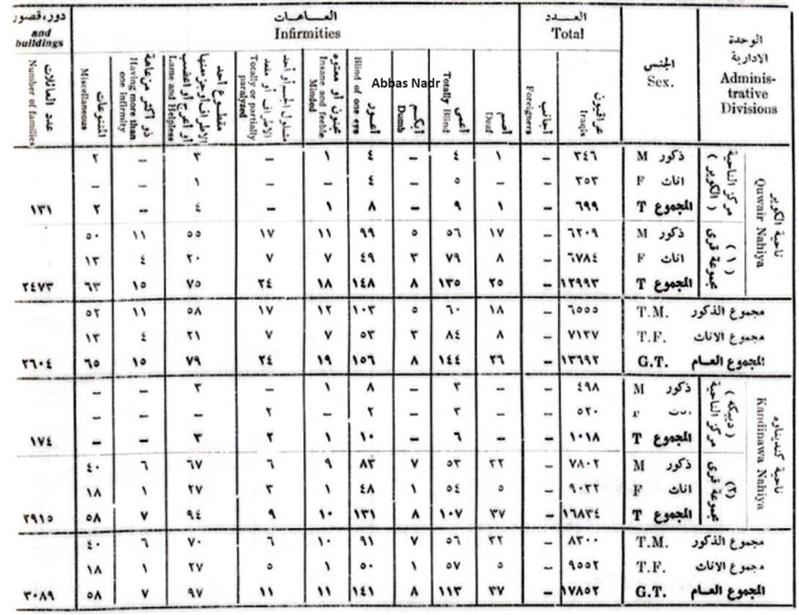 الوحدة الادارية
Adminis-
trative
Divisions
الجنس
Sex.
العدد
Total
عراقيون
Iraqis
أجانب
Foreigners
العاهات
Infirmities
أصم
Deaf
أعمى
Totally Blind
أبكم
Dumb
Abbas Nadr
أعور
Blind of one eye
مجنون أو معتوه
Insane and feeble
Minded
مشلول الجسم أو أحد
الاطراف أو مقعد
Totally or partially
paralyzed
مقطوع أحد
الاطراف أو جزء منها
أو أعرج أو اعضب
Lame and Helpless
ذو أكثر من عاهة
Having more than
one Infirmity
المتنوعات
Miscellaneous
دور، قصور
and
buildings
عدد العائلات
Number of families
ناحية الكوير
Quwair Nahiya
مركز الناحية
( الكوير )
ذكور M ٣٤٦ – ١ ٤ – ٤ ١ – ٣ – ٢
اناث F ٣٥٣ – – ٥ – ٤ – – ١ – –
المجموع T ٦٩٩ – ١ ٩ – ٨ ١ – ٤ – ٢ ١٣١
( ١ )
مجموعة قرى
ذكور M ٦٢٠٩ – ١٧ ٥٦ ٥ ٩٩ ١١ ١٧ ٥٥ ١١ ٥٠
اناث F ٦٧٨٤ – ٨ ٧٩ ٣ ٤٩ ٧ ٧ ٢٠ ٤ ١٣
المجموع T ١٢٩٩٣ – ٢٥ ١٣٥ ٨ ١٤٨ ١٨ ٢٤ ٧٥ ١٥ ٦٣ ٢٤٧٣
مجموع الذكور T.M. ٦٥٥٥ – ١٨ ٦٠ ٥ ١٠٣ ١٢ ١٧ ٥٨ ١١ ٥٢
مجموع الاناث T.F. ٧١٣٧ – ٨ ٨٤ ٣ ٥٣ ٧ ٧ ٢١ ٤ ١٣
المجموع العام G.T. ١٣٦٩٢ – ٢٦ ١٤٤ ٨ ١٥٦ ١٩ ٢٤ ٧٩ ١٥ ٦٥ ٢٦٠٤
ناحية كنديناوه
Kandinawa Nahiya
( ديبكه )
مركز الناحية
ذكور M ٤٩٨ – – ٣ – ٨ ١ – ٣ – –
اناث F ٥٢٠ – – ٣ – ٢ – ٢ – – –
المجموع T ١٠١٨ – – ٦ – ١٠ ١ ٢ ٣ – – ١٧٤
(٢)
مجموعة قرى
ذكور M ٧٨٠٢ – ٣٢ ٥٣ ٧ ٨٣ ٩ ٦ ٦٧ ٦ ٤٠
اناث F ٩٠٣٢ – ٥ ٥٤ ١ ٤٨ ١ ٣ ٢٧ ١ ١٨
المجموع T ١٦٨٣٤ – ٣٧ ١٠٧ ٨ ١٣١ ١٠ ٩ ٩٤ ٧ ٥٨ ٢٩١٥
مجموع الذكور T.M. ٨٣٠٠ – ٣٢ ٥٦ ٧ ٩١ ١٠ ٦ ٧٠ ٦ ٤٠
مجموع الاناث T.F. ٩٥٥٢ – ٥ ٥٧ ١ ٥٠ ١ ٥ ٢٧ ١ ١٨
المجموع العام G.T. ١٧٨٥٢ – ٣٧ ١١٣ ٨ ١٤١ ١١ ١١ ٩٧ ٧ ٥٨ ٣٠٨٩